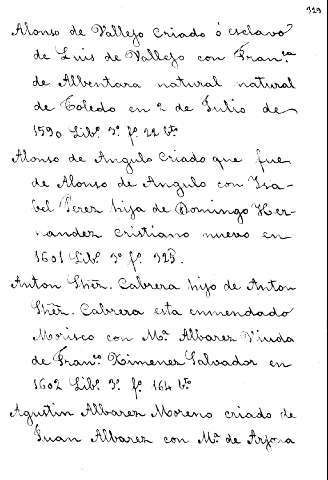 329
Alonso de Vallejo criado ó esclavo
de Luis de Vallejo con Fran.ca
de Albentara natural natural
de Toledo en 2 de Julio de
1590 Lib.o 3.o f.o 22 b.to
Alonso de Angulo criado que fue
de Alonso de Angulo con Ysa-
bel Perez hija de Domingo Her-
nandez cristiano nuevo en
1601 Lib.o 3.o f.o
Anton Shez. Cabrera hijo de Anton
Shez. Cabrera esta enmendado
Morisco con M.a Albarez Viuda
de Fran.co Ximenez Salvador en
1602 Lib.o 3.o f.o 164 b.to
Agustin Albarez Moreno criado de
Juan Albarez con M.a de Arjona